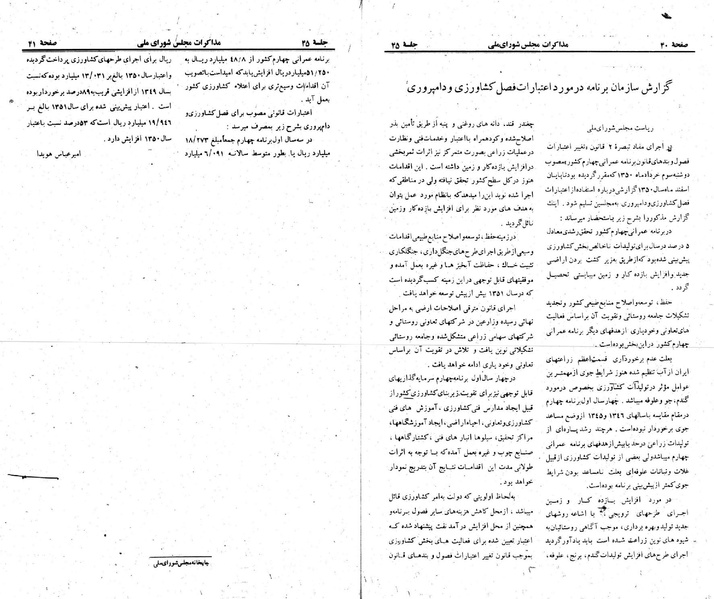 صفحهٔ ۴۰ مذاکرات مجلس شورای ملی جلسهٔ ۳۵
گزارش سازمان برنامه در مورد اعتبارات فصل کشاورزی و دامپروری
ریاست مجلس شورای ملی
در اجرای مفاد تبصرهٔ ۲ قانون «تغییر اعتبارات
فصول و بندهای قانون برنامه عمرانی چهارم کشور» مصوب
دوشنبه سوم خردادماه ۱۳۵۰ که مقرر گردیده بود تا پایان
اسفند ماه سال ۱۳۵۰ گزارشی درباره استفاده از اعتبارات
فصل کشاورزی و دامپروری به مجلسین تسلیم شود. اینک
گزارش مذکور را بشرح زیر باستحضار میرساند:
در برنامه عمرانی چهارم کشور تحقق رشدی معادل
۵ درصد در سال برای تولیدات ناخالص بخش کشاورزی
پیش‌بینی شده بود که از طریق به زیر کشت بردن اراضی
جدید و افزایش بازده کار و زمین میبایستی تحصیل
گردد.
حفظ، توسعه و اصلاح منابع طبیعی کشور و تجدید
تشکیلات جامعه روستائی و تقویت آن براساس فعالیت
های تعاونی و خودیاری از هدفهای دیگر برنامه عمرانی
چهارم کشور در این بخش بوده است.
بعلت عدم برخورداری قسمت اعظم زراعتهای
ایران از آب تنظیم شده هنوز شرایط جوی از مهمترین
عوامل مؤثر در تولیدات کشاورزی بخصوص در مورد
گندم، جو و علوفه میباشد. چهار سال اول برنامه چهارم
در مقام مقایسه با سالهای ۱۳۴۶ و ۱۳۴۵ از وضع مساعد
جوی برخوردار نبوده است. هرچند رشد پاره‌ای از
تولیدات زراعی در حد یا بیش از هدفهای برنامه عمرانی
چهارم میباشد ولی بعضی از تولیدات کشاورزی از قبیل
غلات و نباتات علوفه‌ای بعلت نامساعد بودن شرایط
جوی کمتر از پیش‌بینی برنامه بوده است.
در مورد افزایش بازده کار و زمین
اجرای طرحهای ترویجی با اشاعه روشهای
جدید تولید و بهره برداری، موجب آگاهی روستائیان به
شیوه های نوین زراعت شده است باید یادآور گردید
اجرای طرح‌های افزایش تولیدات گندم، برنج، علوفه،
چغندر قند، دانه های روغنی و پنبه از طریق تأمین بذر
اصلاح شده و کود همراه با اعتبار و خدمات فنی و نظارت
در عملیات زراعی بصورت متمرکز نیز اثرات ثمربخشی
در افزایش بازده کار و زمین داشته است. این اقدامات
هنوز در کل سطح کشور تحقق نیافته ولی در مناطقی که
اجرا شده نوید این را میدهد که با نظام مورد عمل بتوان
به هدف های مورد نظر برای افزایش بازده کار و زمین
نائل گردید.
در زمینه حفظ، توسعه و اصلاح منابع طبیعی اقدامات
وسیعی از طریق اجرای طرح‌های جنگل‌داری، جنگلکاری
تثبیت خاک، حفاظت آبخیزها و غیره بعمل آمده و
موفقیتهای قابل توجهی در این زمینه کسب گردیده است
که در سال ۱۳۵۱ بیش از پیش توسعه خواهد یافت.
اجرای قانون مترقی اصلاحات ارضی به مراحل
نهائی رسیده و زارعین در شرکتهای تعاونی روستائی و
شرکتهای سهامی زراعی متشکل شده و جامعه روستائی
تشکیلاتی نوین یافت و تلاش در تقویت آن براساس
تعاونی و خودیاری ادامه خواهد یافت.
در چهار سال اول برنامه چهارم سرمایه گذاریهای
قابل توجهی نیز برای تقویت زیربنای کشاورزی کشور از
قبیل ایجاد مدارس فنی کشاورزی، آموزش های فنی
کشاورزی و تعاونی، احیاء اراضی، ایجاد آموزشگاهها،
مراکز تحقیق، سیلوها انبار های فنی، کشتارگاهها،
صنایع چوب و غیره بعمل آمده که با توجه به اثرات
طولانی مدت این اقدامات نتایج آن بتدریج نمودار
خواهد بود.
به لحاظ اولویتی که دولت به امر کشاورزی قائل
میباشد، از محل کاهش هزینه‌های سایر فصول برنامه و
همچنین از محل افزایش درآمد نفت پیشنهاد شده که
اعتبار تعیین شده برای فعالیت های بخش کشاورزی
بموجب قانون تغییر اعتبارات فصول و بندهای قانون
جلسهٔ ۳۵ مذاکرات مجلس شورای ملی صفحهٔ ۴۱
برنامه عمرانی چهارم کشور از ۴۸/۸ میلیارد ریال به
۵۱/۲۵۰ میلیارد ریال افزایش یابد که امید است با تصویب
آن اقدامات وسیع‌تری برای اعتلاء کشاورزی کشور
بعمل آید.
اعتبارات قانونی مصوب برای فصل کشاورزی و
دامپروری بشرح زیر بمصرف میرسد:
در سه سال اول برنامه چهارم جمعاً مبلغ ۱۸/۲۷۳
میلیارد ریال یا بطور متوسط سالانه ۶/۰۹۱ میلیارد
ریال برای اجرای طرحهای کشاورزی پرداخت گردیده
و اعتبار سال ۱۳۵۰ بالغ بر ۱۳/۰۳۱ میلیارد بوده که نسبت
به سال ۱۳۴۹ از افزایشی قریب به ۸۹ درصد برخوردار
است. اعتبار پیش‌بینی شده برای سال ۱۳۵۱ بالغ بر
۱۹/۹۴۶ میلیارد ریال است که ۵۳ درصد نسبت با اعتبار
سال ۱۳۵۰ افزایش دارد.
امیرعباس هویدا
چاپخانه مجلس شورای ملی